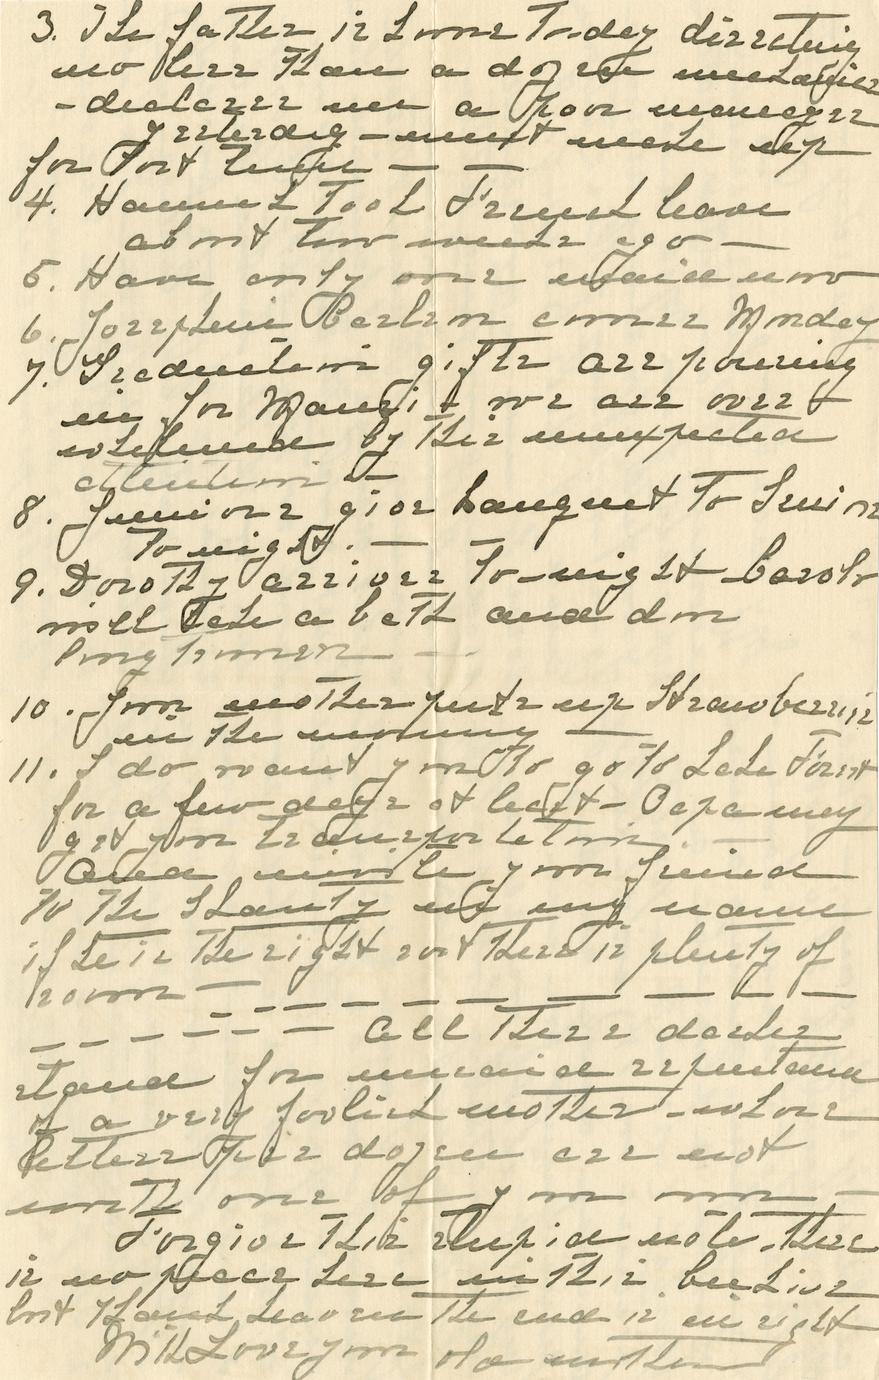 3. The father is home to-day directing
no less than a dozen mechanics
- declares me a poor manager
yesterday - must make up
for lost time - —
4. Hannah took French leave
about two weeks ago —
5. Have only one maid now
6. Josephine comes Monday
7. Graduation gifts are pouring
in for - we are over-
whelmed by this unexpected
attention -
8. Juniors give banquet to Seniors
to night. —
9. Dorothy arrives to-night
will take a bath and don
long trousers — -
10. Your mother puts up strawberries
in the morning —
11. I do want you to go to Lake Forest
for a few days at least - Papa may
get your transportation
and invite your friend
to the Shanty in my name
if he is the right sort there is plenty of
room —
All these dashes
stand for repentance
of a very foolish mother - whose
letters per dozen are not
worth one of your own —
Forgive this stupid note, there
is no peace here in this bee hive
but thank heaven the end is in sight
With Love your old mother